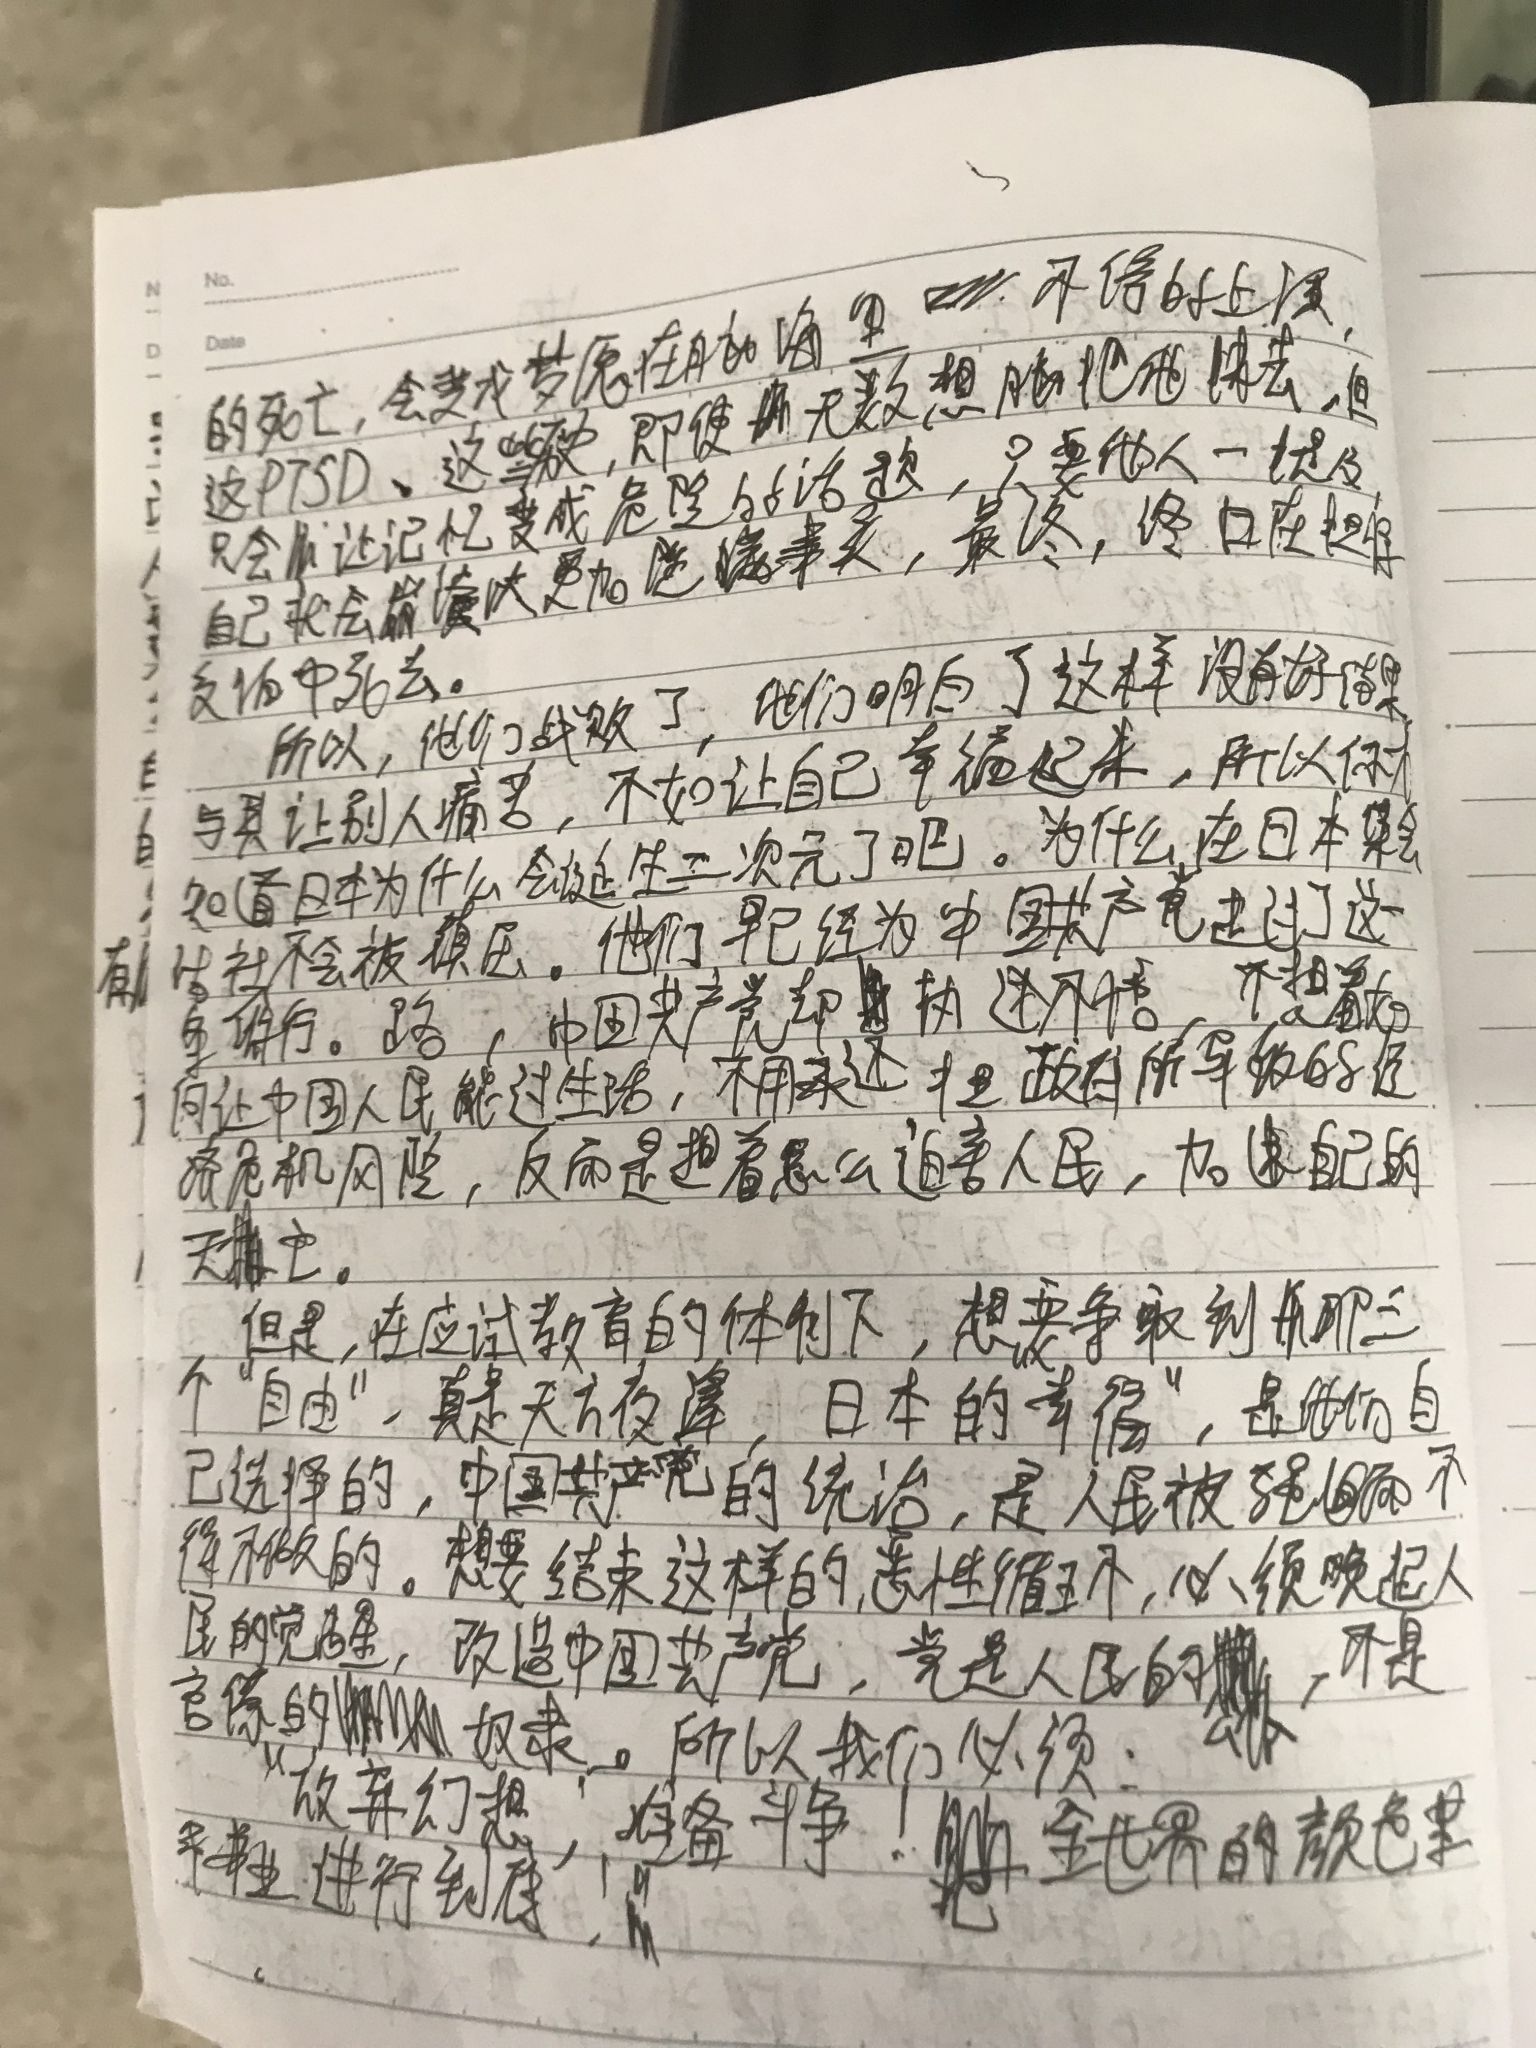 No.
Date
的死亡，会变成梦魇在脑海里 不停的上演，
这PTSD、这些，即使无数想脑把他抹去，但
只会让记忆变成危险的话题，只要他人一提及
自己就会崩溃 更加，最终，终日在担惊
受怕中死去。
所以，他们战败了，他们明白了这样没有好结果，
与其让别人痛苦，不如让自己幸福起来，所以你
知道日本为什么会诞生二次元了吧。为什么在日本集会
有 结社不会被镇压。他们早已经为中国共产党走过了这
罪行。路，中国共产党却执迷不悟，不想着如
何让中国人民能过生活，不用承担政府所导致的经
济危机风险，反而是想着怎么迫害人民，加速自己的
灭亡。
但是，在应试教育的体制下，想要争取到那三
个“自由”，真是天方夜谭，日本的幸福”，是他们自
己选择的，中国共产党的统治，是人民被强迫而不
得不做的。想要结束这样的恶性循环，必须唤起人
民的觉醒，改造中国共产党，党是人民的，不是
官僚的 奴隶。所以我们必须：
“放弃幻想，准备斗争！把全世界的颜色革
命 进行到底！”